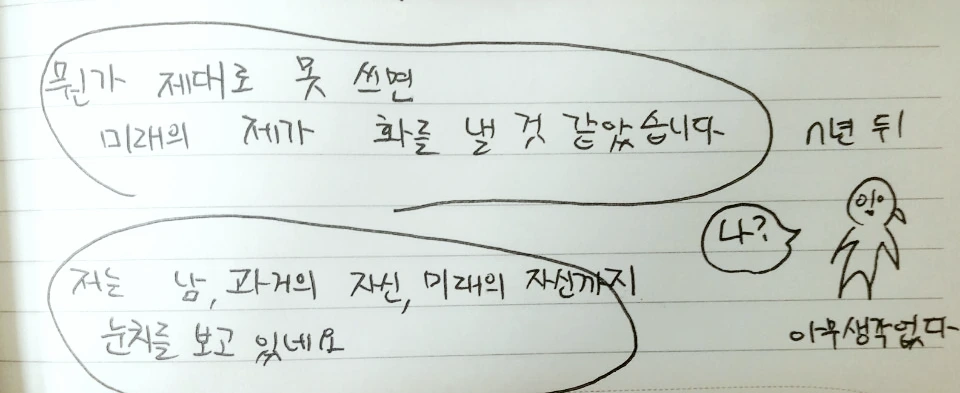 뭔가 제대로 못 쓰면
미래의 제가 화를 낼 것 같았습니다
n년 뒤
나?
저는 남, 과거의 자신, 미래의 자신까지
눈치를 보고 있네요
아무생각없다